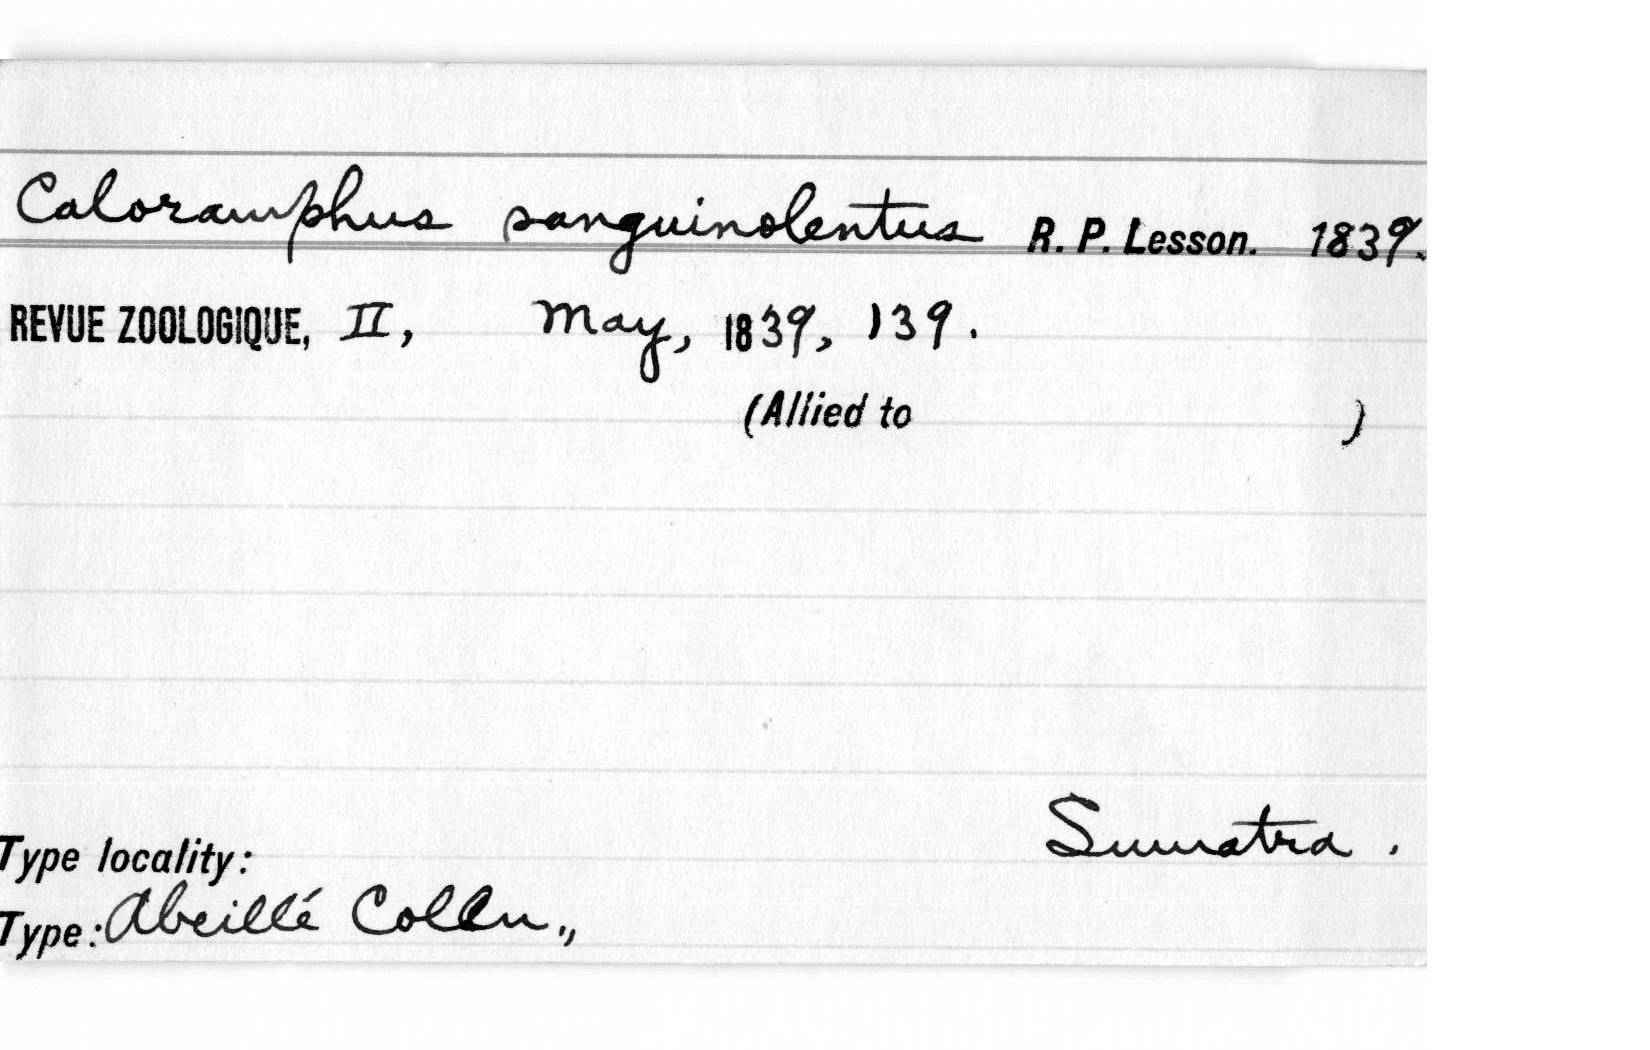 Caloramphus sanguinolentus R. P. Lesson. 1839.
REVUE ZOOLOGIQUE, II, May, 1839, 139.
(Allied to )
Sumatra.
Type locality:
Type: Abeillé Colln.,